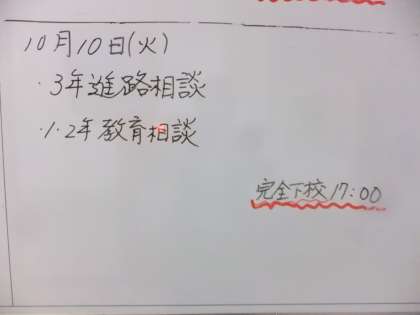 10月10日(火)
・3年進路相談
・1・2年教育相談
完全下校17:00